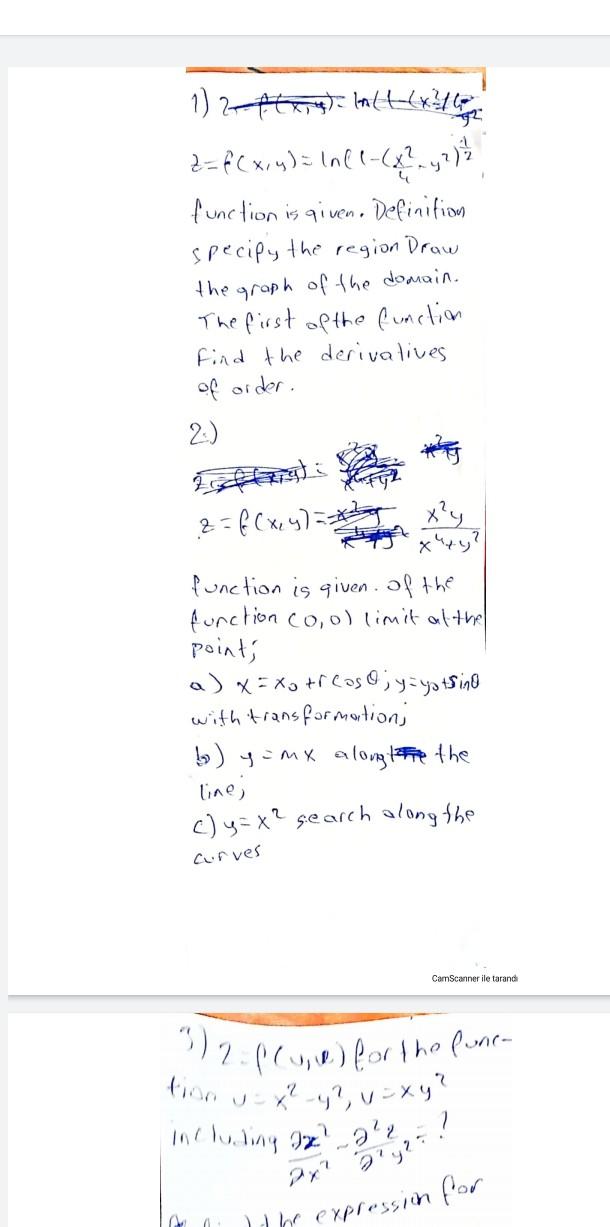 1) z=f(x,y)=ln(1-(x²/4-y²
z=f(x,y)=ln(1-(x²/4-y²)^1/2
function is given. Definition
specify the region Draw
the graph of the domain.
The first of the function
Find the derivatives
of order.
2.)
z=f(x,y)=
z=f(x,y)= x²y/x⁴+y²
function is given. of the
function (0,0) limit at the
point;
a) x=x₀+rcosθ; y=y₀+sinθ
with transformation;
b) y=mx along the
line;
c) y=x² search along the
curves
CamScanner ile tarandı
3) z=f(u,v) for the func-
tion u=x²-y², v=xy²
including ∂z²/∂x² - ∂²z/∂²y²=?
the expression for